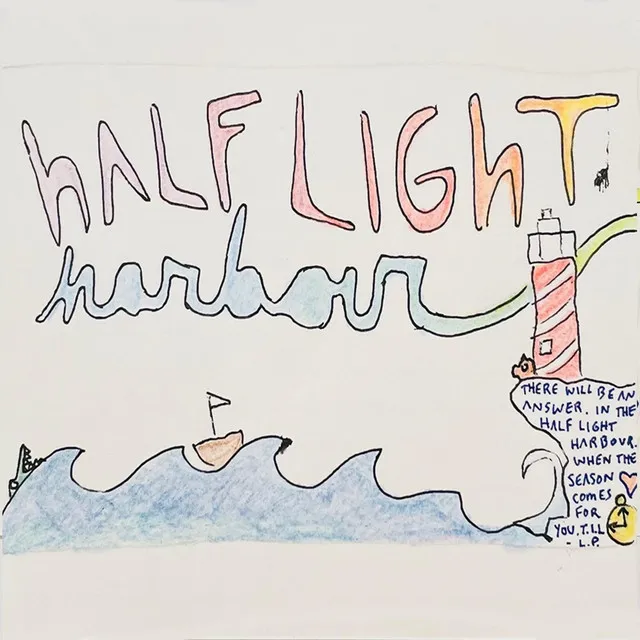 hALF LIGhT
harbour
THERE WILL BE AN
ANSWER. IN THE
HALF LIGHT
HARBOUR.
WHEN THE
SEASON
COMES
FOR
YOU. T.LL
- L.P.